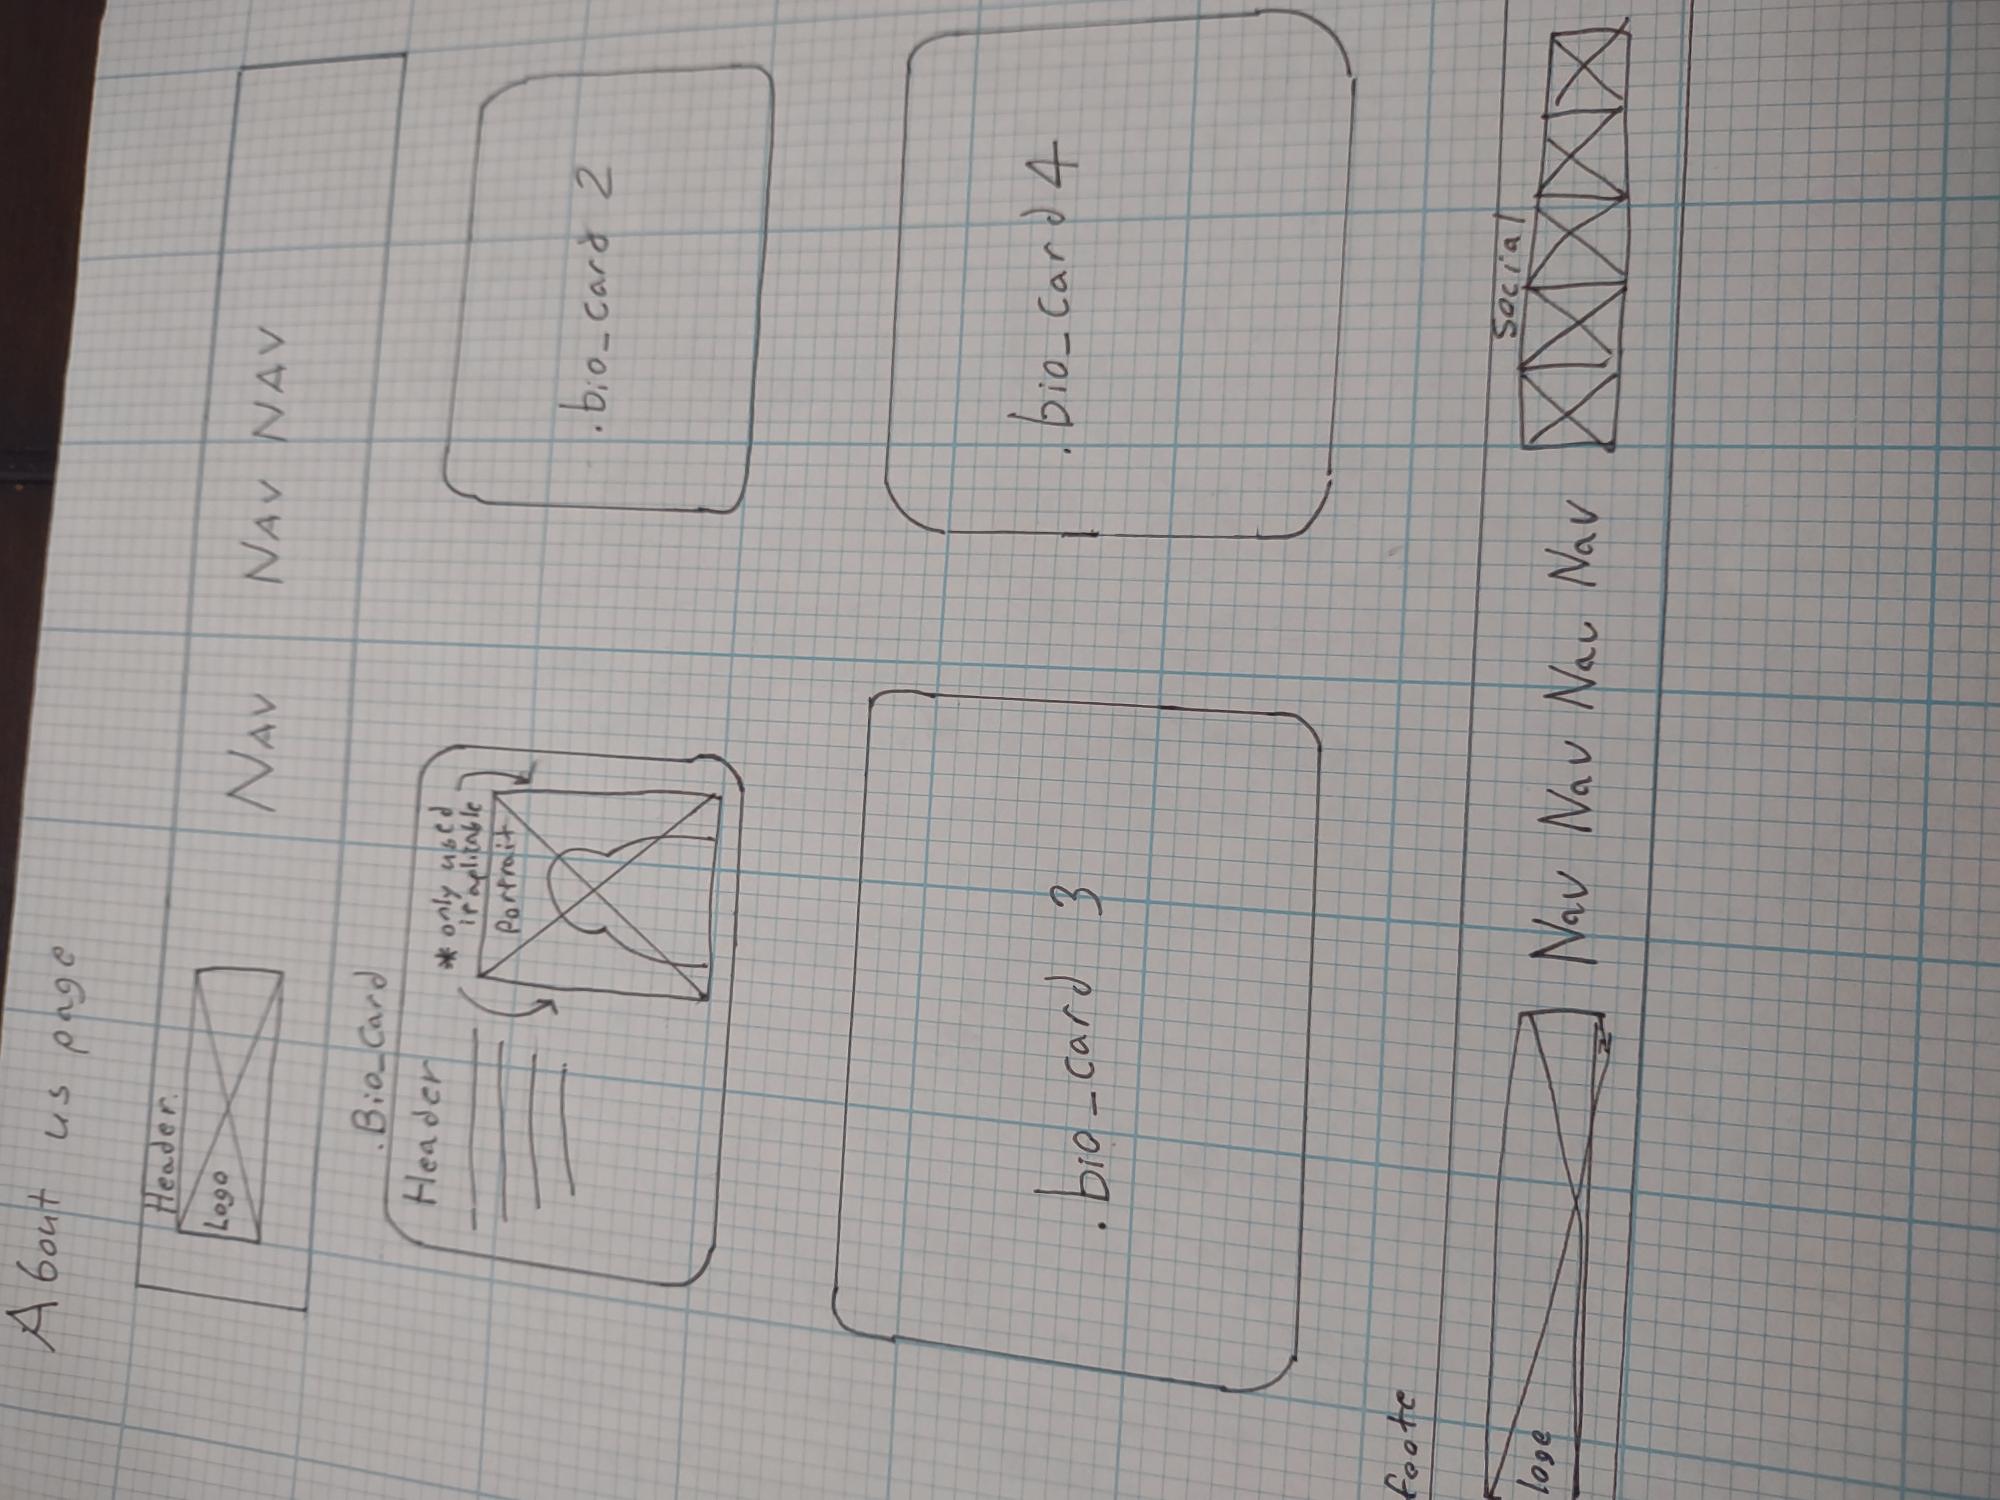 About us page
Header.
Logo
NAV NAV NAV
.Bio_Card
Header
* only used
Portrait
.bio_card 2
.bio_card 3
.bio_card 4
foote
loge
Nav Nav Nav Nav
Social